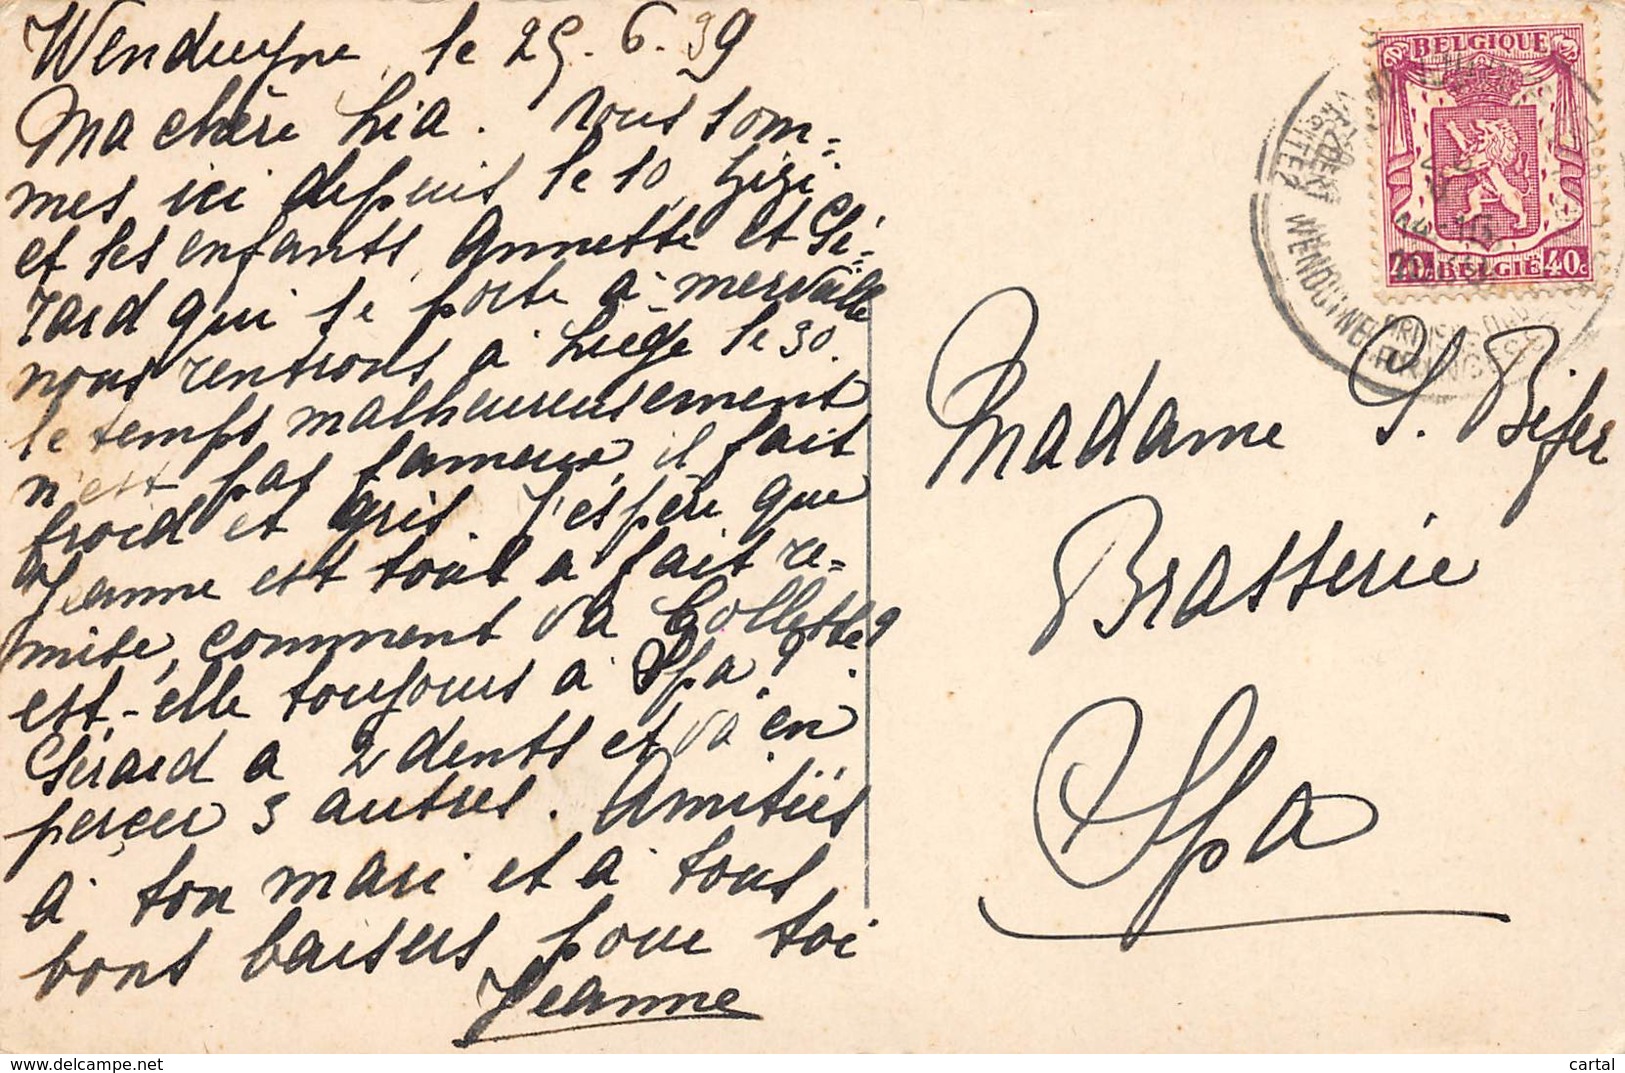 Wenduyne, le 25.6.39
Ma chère Lia. Nous som=
mes ici depuis le 10, Zizi
et les enfants, Annette et Gé=
rard qui se porte à merveille
nous rentrons à Liège le 30.
le temps malheureusement
n'est pas fameux, il fait
froid et gris. J'espère que
Jeanne est tout à fait re=
mise, comment va Collette?
est-elle toujours à Spa?
Gérard a 2 dents et va en
perçer 3 autres. Amitiés
à ton mari et à tous
bons baisers pour toi
Jeanne
BELGIQUE
40c BELGIË 40c
WENDUYNE
Madame S. Bifer
Brasserie
Spa
cartal
delcampe.net